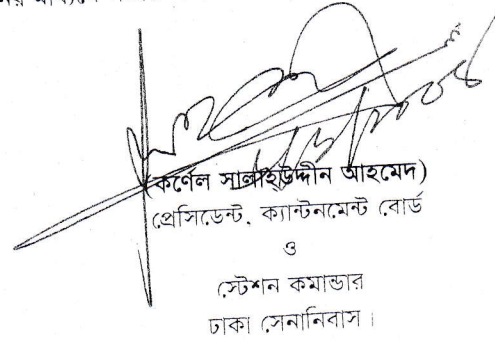 (কর্ণেল সালাহউদ্দীন আহমেদ)
প্রেসিডেন্ট, ক্যান্টনমেন্ট বোর্ড
ও
স্টেশন কমান্ডার
ঢাকা সেনানিবাস।